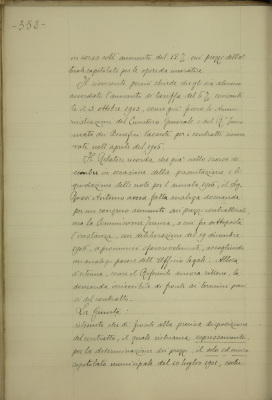 -352-
in corso coll'aumento del 15% sui prezzi della
locale capitolati per le opere da muratore.
Il ricorrente perciò chiede che gli sia almeno
accordato l'aumento di tariffa del 6% consentito
il 3 ottobre 1905, come già fecero le Ammi-
nistrazioni del Cimitero Generale e del R° Econo-
mato dei Benefici Vacanti per i contratti rinno-
vati nell'aprile del 1906.
Il Relatore ricorda che già nello scorso di-
cembre in occasione della presentazione e li-
quidazione delle note per l'annata 1906, il Sig.
Antonio aveva fatta analoga domanda
per un congruo aumento sui prezzi contrattuali,
ma la Commissione, a cui fu sottoposta
l'instanza, con deliberazione del 19 dicembre
1906, si pronunciò sfavorevolmente, accogliendo
un analogo parere dell'Uffizio legale. Allora
d'intorno, come il Referente ancora ritiene, la
domanda inammissibile di fronte ai termini pre-
cisi del contratto.
La Giunta:
ritenuto che di fronte alla precisa disposizione
del contratto, il quale richiama espressamente,
per la determinazione dei prezzi, il solo ed unico
capitolato municipale del 10 luglio 1901,